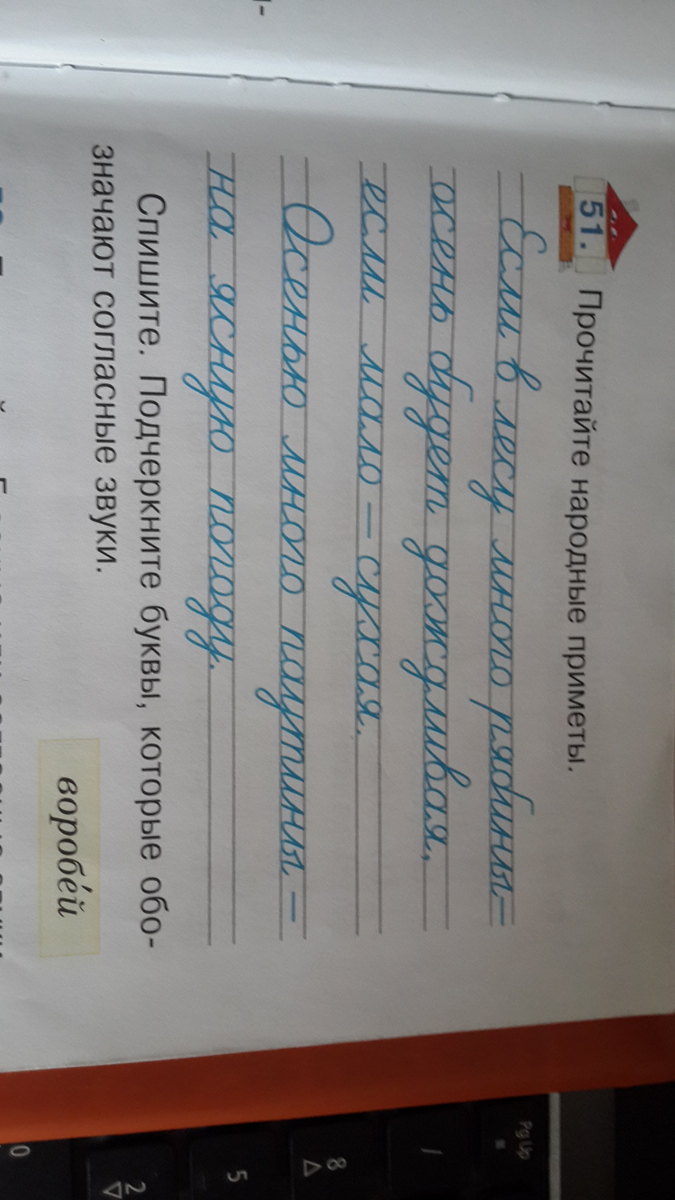 51. Прочитайте народные приметы.
Если в лесу много рябины –
осень будет дождливая,
если мало – сухая.
Осенью много паутины –
на ясную погоду.
Спишите. Подчеркните буквы, которые обо-
значают согласные звуки.
воробе́й
Pg Up
/
8
5
2
0